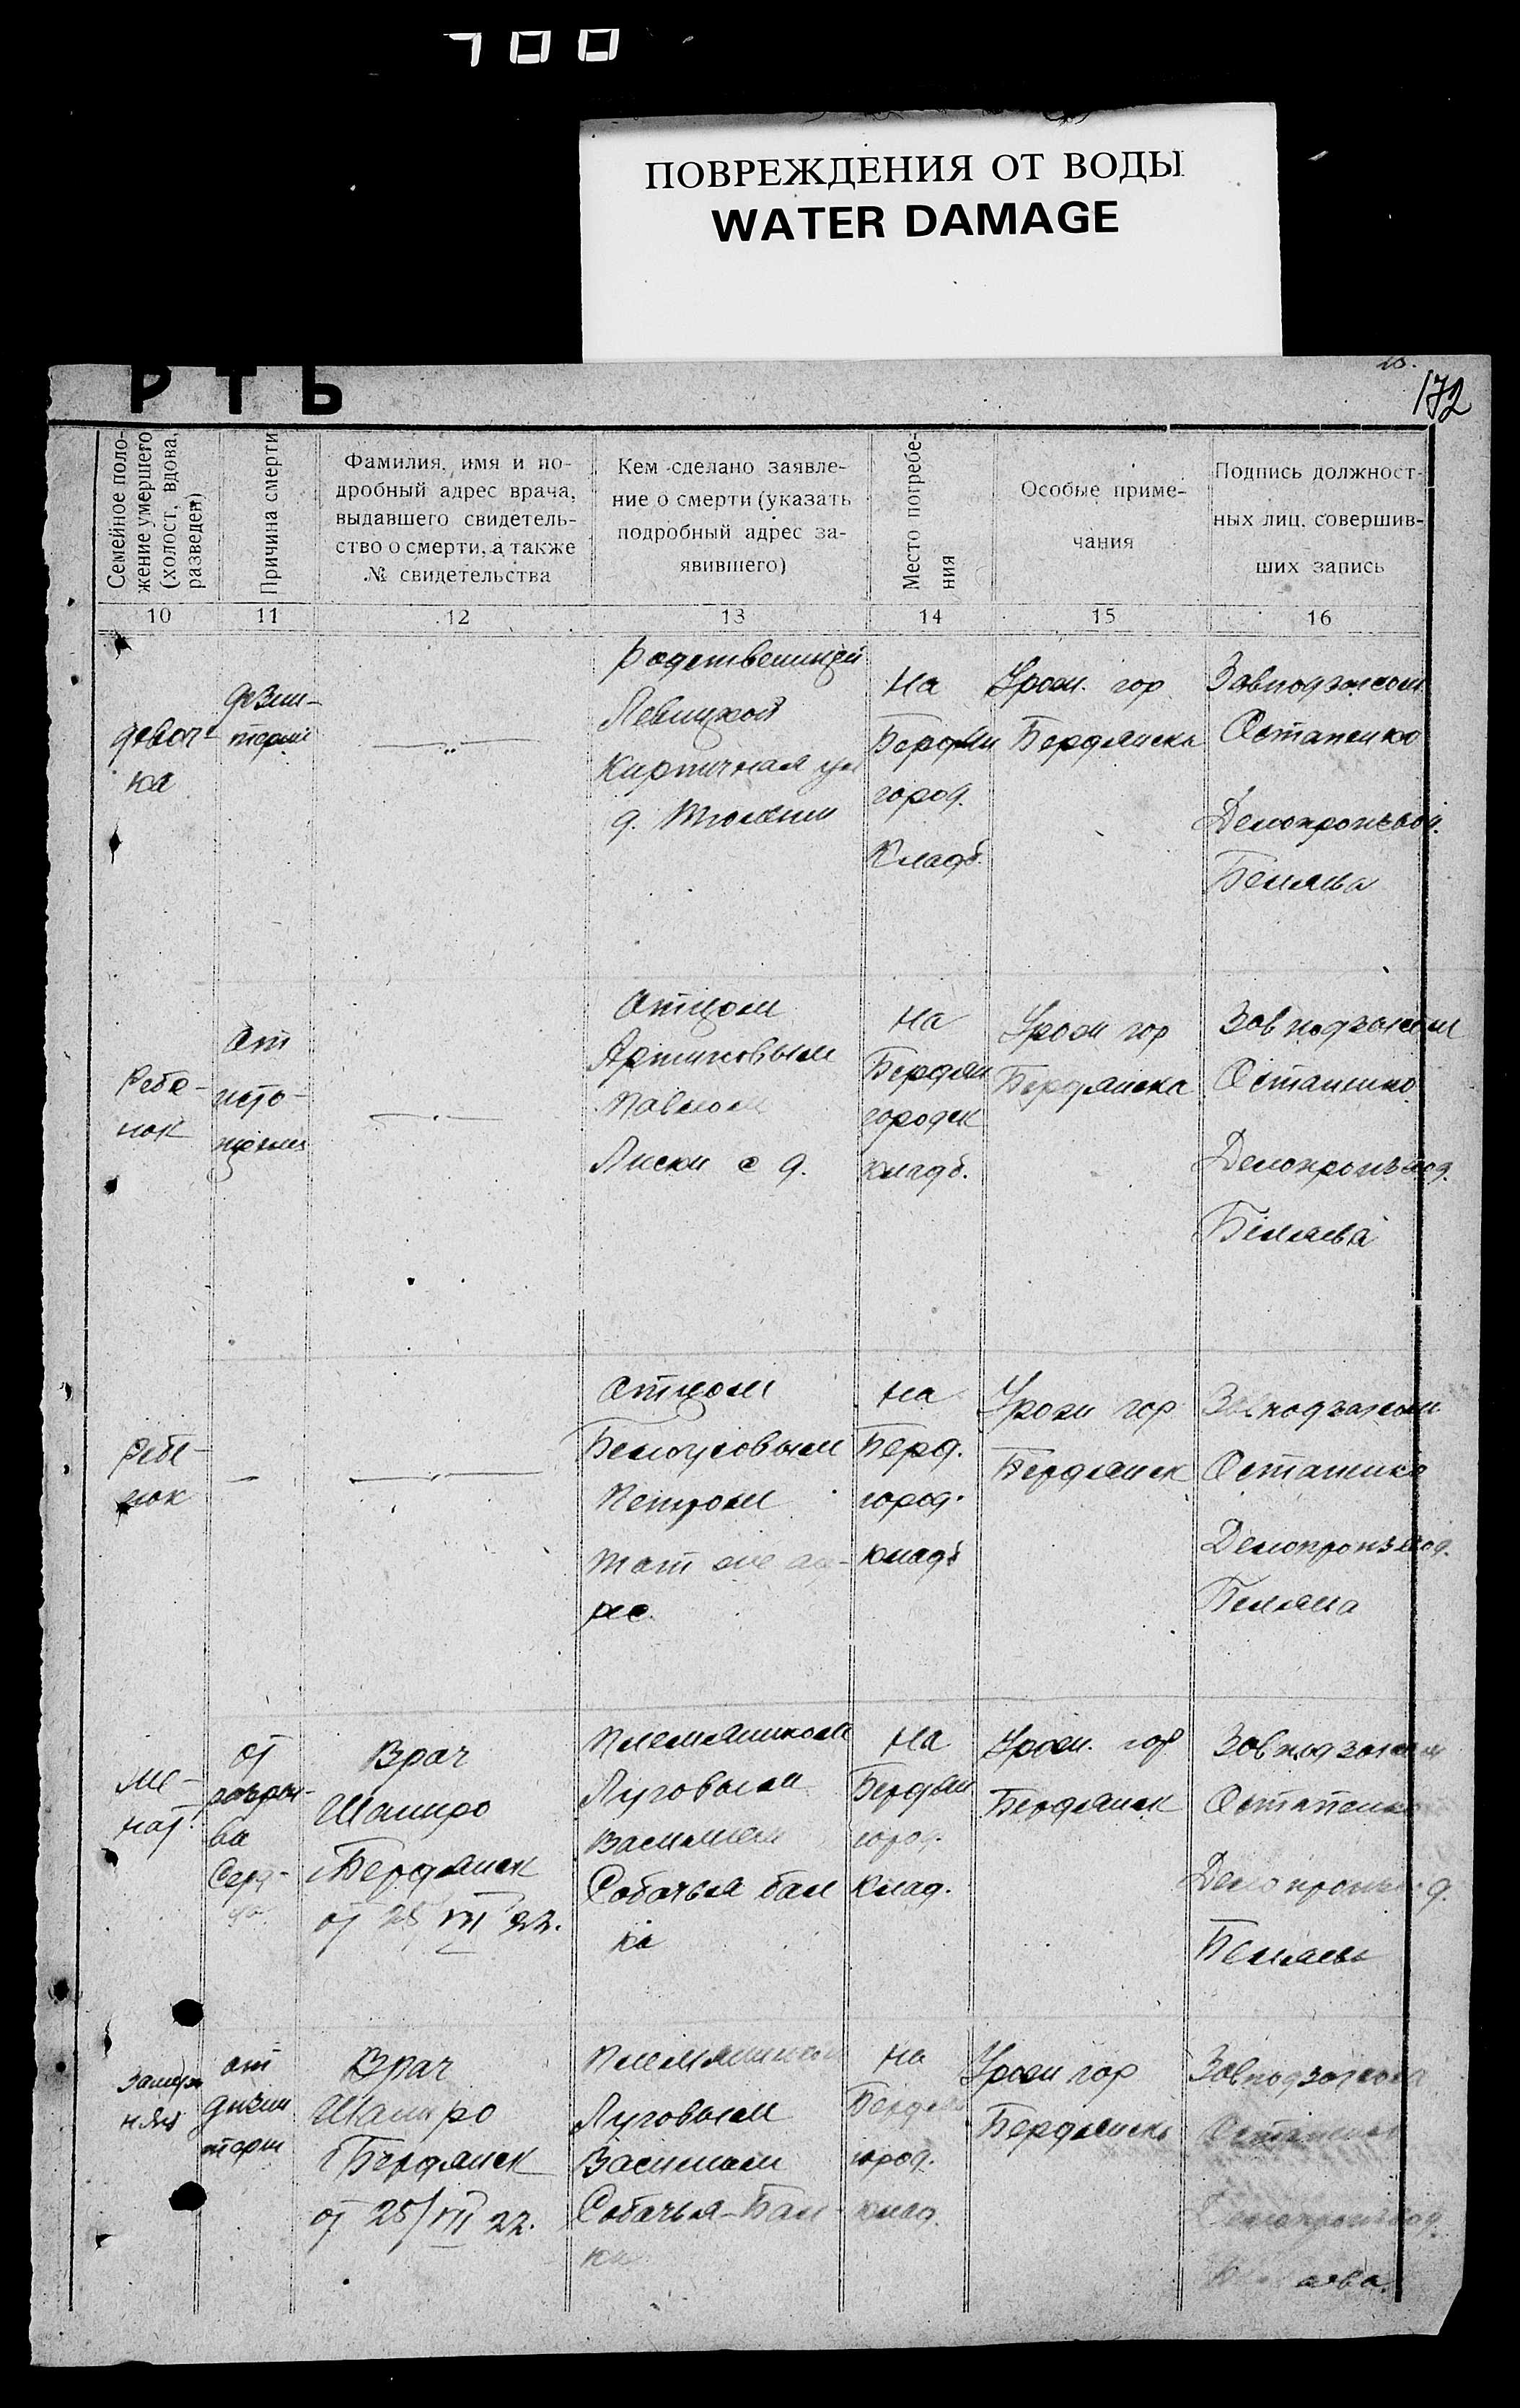 700
ПОВРЕЖДЕНИЯ ОТ ВОДЫ
WATER DAMAGE
172
РТЬ
Семейное поло-
жение умершего
(холост, вдова,
разведен)
Причина смерти
Фамилия, имя и по-
дробный адрес врача,
выдавшего свидетель-
ство о смерти, а также
№ свидетельства
Кем сделано заявле-
ние о смерти (указать
подробный адрес за-
явившего)
Место погребе-
ния
Особые приме-
чания
Подпись должност-
ных лиц, совершив-
ших запись
10
11
12
13
14
15
16
девоч-
ка
дезин-
терии
—„—
Родственницей
Левицкой
Кирпичная ул
д.
На
Бердян
город.
Кладб.
Урож. гор
Бердянска
Завподзагсом
Остапенко
Делопроизвод.
Беляева
Ребе-
нок
От
исто-
щения
Отцом
Павлом
Лиски с д.
На
Бердян
городск
кладб.
Урож гор
Бердянска
Завподзагсом
Остапенко
Делопроизвод.
Беляева
Ребе-
нок
—
Отцом
Белоусовым
Петром
Тот же ад-
рес.
На
Берд.
город.
кладб
Урож гор
Бердянск
Завподзагсом
Остапенко
Делопроизвод.
Беляева
же-
нат.
от
разры-
ва
Серд-
ца
Врач
Шапиро
Бердянск
от 25 VIII 22.
Племянником
Луговым
Василием
Собачья бал
ка
На
Бердян
город.
Клад.
Урож. гор
Бердянск
Завподзагсом
Остапенко
Делопроизвод.
Беляева
Замуж
няя
от
дизин
терии
Врач
Шапиро
Бердянск
от 25/VIII 22.
Племянником
Луговым
Василием
Собачья-Бал-
ка
На
Бердян
город.
клад.
Урож гор
Бердянск
Завподзагсом
Остапенко
Делопроизвод.
Беляева.